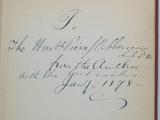 To
The Honble Pierre J. O. Chauveau
L.L.D. &c
from the Author
with his best wishes
Jany. 1878.